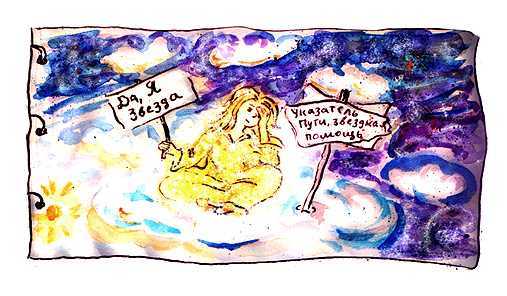 Да, Я
звезда
Указатель
Пути, звездная
помощь